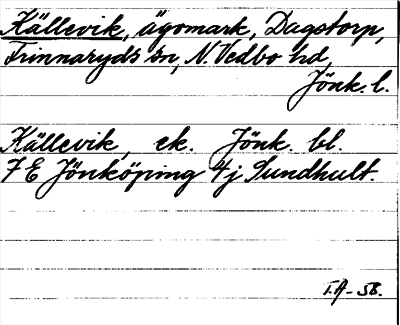 Källevik, ägomark, Dagstorp,
Frinnaryds sn, N. Vedbo hd,
Jönk. l.
Källevik, ek. Jönk. bl.
7 E Jönköping 4j Sundhult.
I.A - 58.